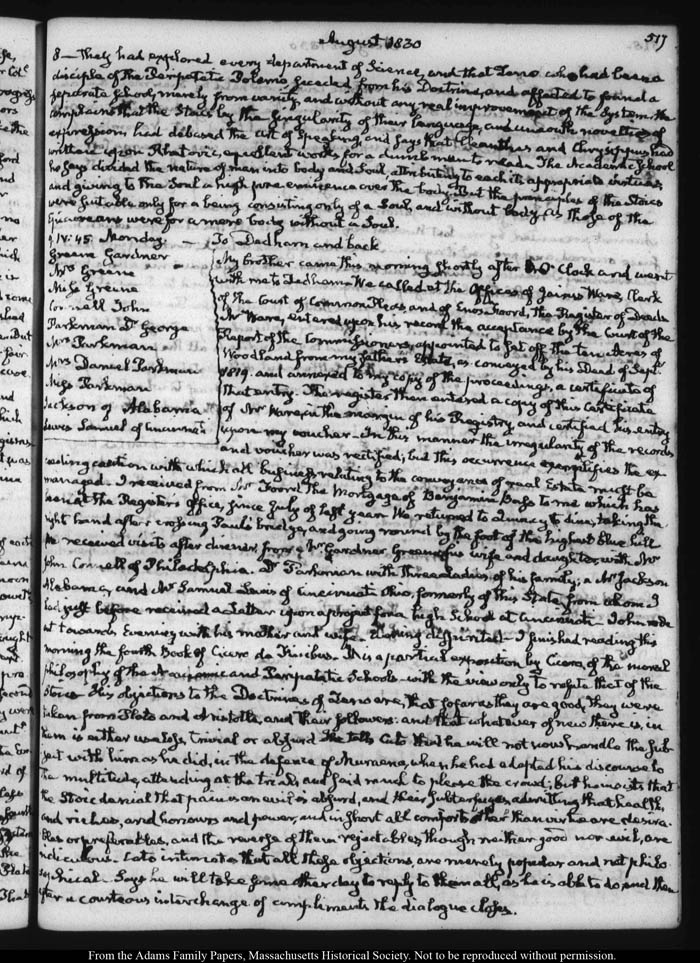 August 1830
517
8 — They had explored every department of Science, and that Zeno who had been a
disciple of the Peripatetic Polemo seceded from his Doctrine, and affected to found a
separate School, merely from vanity, and without any real improvement of the System. He
complains that the Stoics by the singularity of their language, and uncouth novelties of
expression, had debased the art of speaking, and says that Cleanthes and Chrysippus had
written upon Rhetoric, excellent works for a dumb man to read. The Academic School
he says divided the nature of man into body and Soul, attributing to each its appropriate virtues,
and giving to the Soul a high pre-eminence over the body. But the principles of the Stoics
were suitable only for a being consisting only of a Soul, and without body, as those of the
Epicureans were for a mere body without a Soul.
9. IV:45. Monday. — To Dedham and back
Greene Gardner
Mrs Greene
Miss Greene
Connell John
Parkman Dr George
Mrs Parkman
Mrs Daniel Parkman
Miss Parkman
Jackson of Alabama
Lewis Samuel of Cincinnati
My brother came this morning shortly after Clock and went
with me to Dedham. We called at the Offices of Jairus Ware, Clerk
of the Court of Common Pleas, and of Enos Foord, the Register of Deeds
Mr Ware, entered upon his record the acceptance by the Court of the
Report of the Commissioners, appointed to set off the ten Acres of
Woodland from my father's Estate, as conveyed by his Deed of Septr
1819. and annexed to my copy of the proceedings, a certificate of
that entry. The register then entered a copy of this Certificate
of Mr Ware, in the margin of his Registry, and certified his entry
upon my voucher. In this manner the irregularity of the records
and voucher was rectified; but this occurrence exemplifies the ex-
ceeding caution with which all business relating to the conveyance of real Estate must be
managed. I received from Mr Foord the Mortgage of Benjamin Bass to me which has
been at the Registers office, since July of last year. We returned to Quincy to dine, taking the
right hand after crossing Paul's bridge, and going round by the foot of the highest blue hill
We received visits after dinner, from Mr Gardner Greene, his wife and daughter, with Mr
John Connell of Philadelphia. Dr Parkman with three Ladies of his family; a Mr Jackson
Alabama, and Mr Samuel Lewis of Cincinnati Ohio, formerly of this State, from whom I
had just before received a Letter upon a project for a high School at Cincinnati. John rode
out towards Evening with his mother and wife. I finished reading this
morning the fourth Book of Cicero de Finibus. It is a partial exposition by Cicero, of the moral
philosophy of the Academic and Peripatetic Schools — with the view only to refute that of the
Stoics. His objections to the Doctrines of Zeno are, that so far as they are good, they were
taken from Plato and Aristotle, and their followers: and that whatever of new there is, in
them is either useless, trivial or absurd. He tells Cato that he will not now handle the sub-
ject with him as he did, in the defence of Muraena, when he had adapted his discourse to
the multitude, attending at the trial, and said much to please the crowd; but he insists that
the Stoic denial that pain is an evil is absurd, and their subterfuges, admitting that health,
and riches, and honours and power, and in short all comforts other than virtue are desira-
bles or preferables, and the reverse of them rejectables though neither good nor evil, are
ridiculous. Cato intimates that all these objections, are merely popular and not philo
sophical. Says he will take some other day to reply to them all, as he is able to do, and then
after a courteous interchange of compliments the dialogue closes.
From the Adams Family Papers, Massachusetts Historical Society. Not to be reproduced without permission.